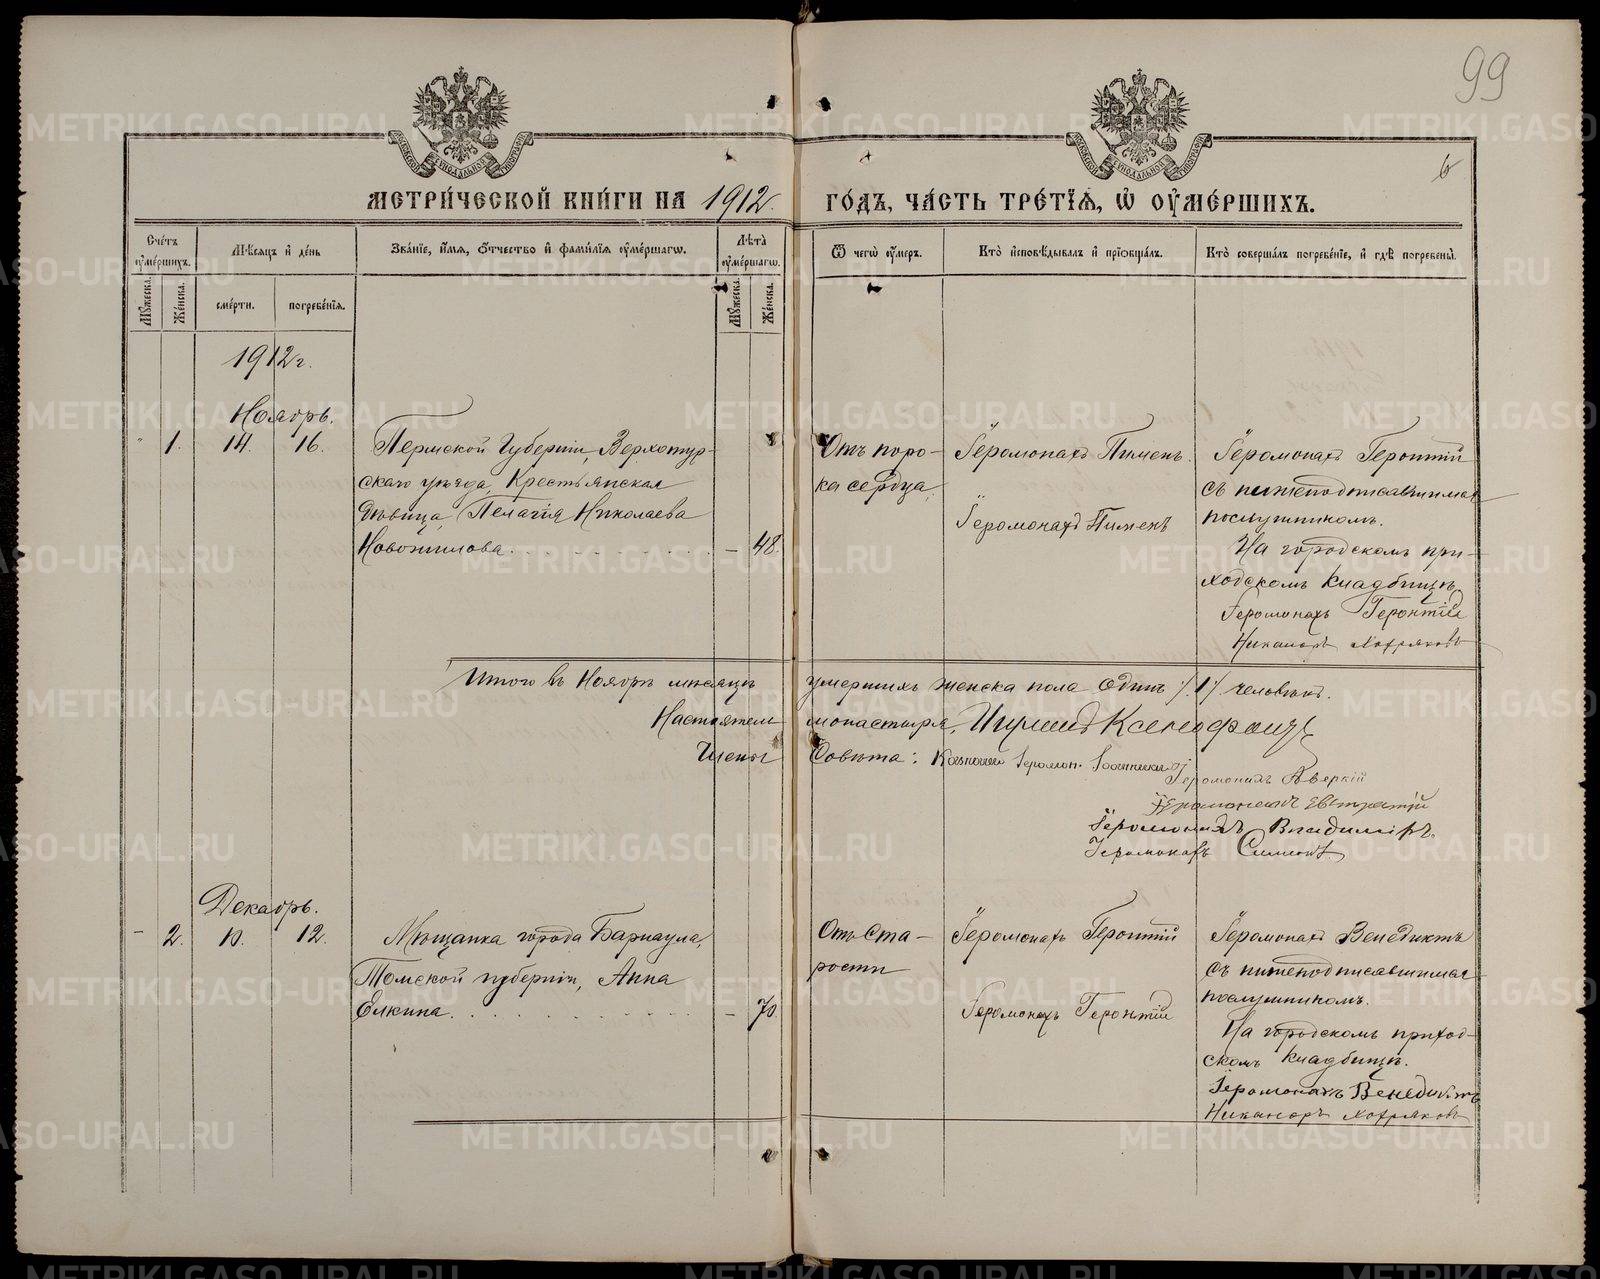 99
6
МЕТРИ́ЧЕСКОЙ КНИ́ГИ НА 1912 ГО́ДЪ, ЧА́СТЬ ТРЕ́ТІЯ, Ѡ ОУМЕ́РШИХЪ.
Сче́тъ оумершихъ.
Мѣсяцъ и день
Зва́нїе, и́мя, ѻ́тчество и фами́лїя оуме́ршагѡ.
Лѣта̀ оуме́ршагѡ.
Ѿ чегѡ̀ оу́меръ.
Кто̀ и҆сповѣ́дывалъ и҆ прїѡбща́лъ.
Кто̀ соверша́лъ погребе́нїе, и҆ гдѣ̀ погребены̀.
Мꙋ́жеска.
Же́нска.
сме́рти.
погребе́нїя.
Мꙋ́жеска.
Же́нска.
1912 г.
Ноябрь.
" 1. 14. 16.
Пермской Губерніи, Верхотур-
скаго уѣзда, Крестьянская
дѣвица, Пелагія Николаева
Новожилова. – 48.
Отъ поро-
ка сердца.
Іеромонахъ Пименъ.
Іеромонахъ Пименъ
Іеромонахъ Геронтій
съ нижеподписавшимся
послушникомъ.
На городскомъ при-
ходскомъ кладбищѣ.
Іеромонахъ Геронтій
Никаноръ Хохряковъ
Итого въ Ноябрѣ мѣсяцѣ умершихъ женска пола одинъ /1/ человѣкъ.
Настоятель монастыря, Игуменъ Ксенофонтъ
Члены Совѣта: Казначей Іеромон.
Іеромонахъ Аверкій
Іеромонахъ Евстратій
Іеромонахъ Владиміръ.
Іеромонахъ
Декабрь.
– 2. 10. 12.
Мѣщанка города Барнаула,
Томской губерніи, Анна
Елкина. – 70
Отъ ста-
рости
Іеромонахъ Геронтій
Іеромонахъ Геронтій
Іеромонахъ Венедиктъ
съ нижеподписавшимся
послушникомъ.
На городскомъ приход-
скомъ кладбищѣ.
Іеромонахъ Венедиктъ
Никаноръ Хохряковъ
METRIKI.GASO-URAL.RU